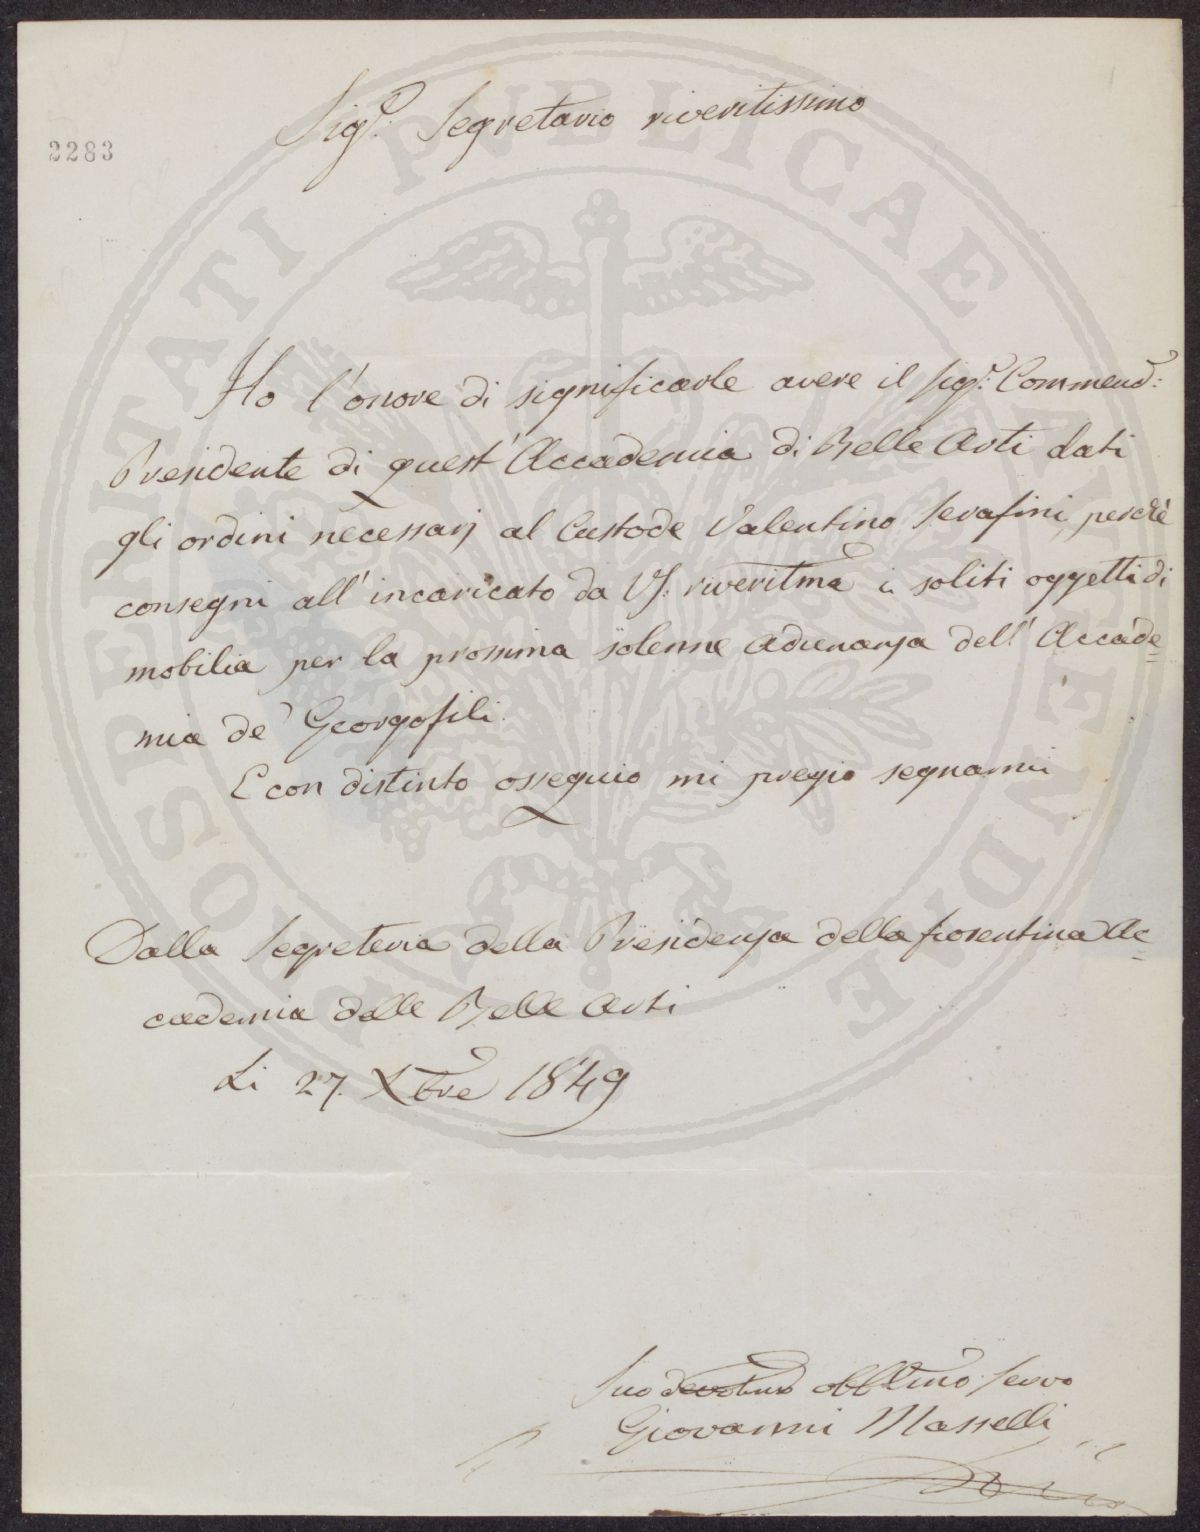 2283
Sig.e Segretario riveritissimo
Ho l'onore di significarle avere il Sig.e Commend.:
Presidente di quest'Accademia di Belle Arti dati
gli ordini necessarj al Custode Valentino Serafini, perchè
consegni all'incaricato da VS. riveritma i soliti oggetti di
mobilia per la prossima solenne adunanza dell'Accade=
mia de' Georgofili.
E con distinto ossequio mi pregio segnarmi
Dalla Segreteria della Presidenza della fiorentina Ac=
cademia delle Belle Arti
Li 27. Xbre 1849
Suo obblmo Servo
Giovanni Masselli
PROSPERITATI PUBLICAE AUGENDAE